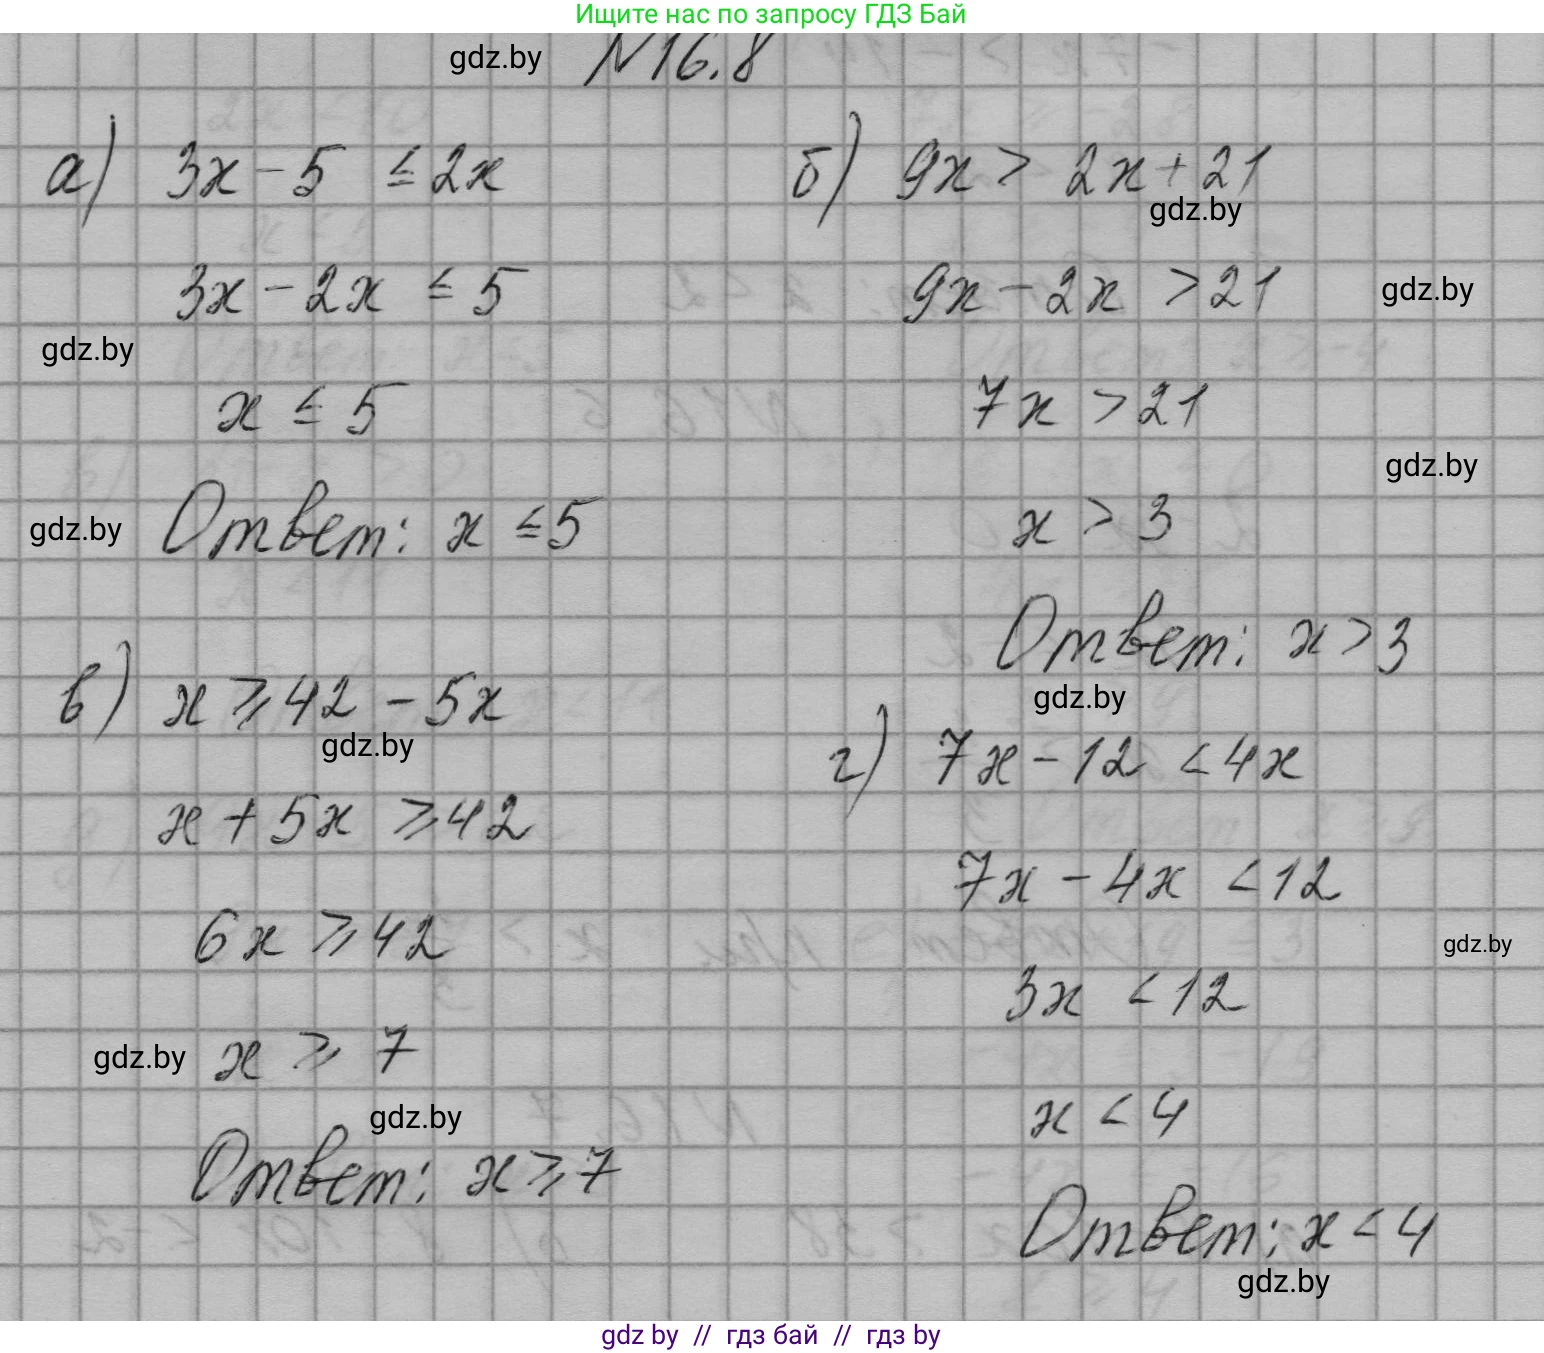 Ищите нас по запросу ГДЗ Бай
gdz.by
N16.8
а) 3x - 5 ≤ 2x
3x - 2x ≤ 5
gdz.by
x ≤ 5
gdz.by
Ответ: x ≤ 5
б) 9x > 2x + 21
gdz.by
9x - 2x > 21
gdz.by
7x > 21
gdz.by
x > 3
Ответ: x > 3
gdz.by
в) x ≥ 42 - 5x
gdz.by
x + 5x ≥ 42
6x ≥ 42
gdz.by
x ≥ 7
gdz.by
Ответ: x ≥ 7
г) 7x - 12 < 4x
7x - 4x < 12
gdz.by
3x < 12
x < 4
Ответ: x < 4
gdz.by
gdz by // гдз бай // гдз by